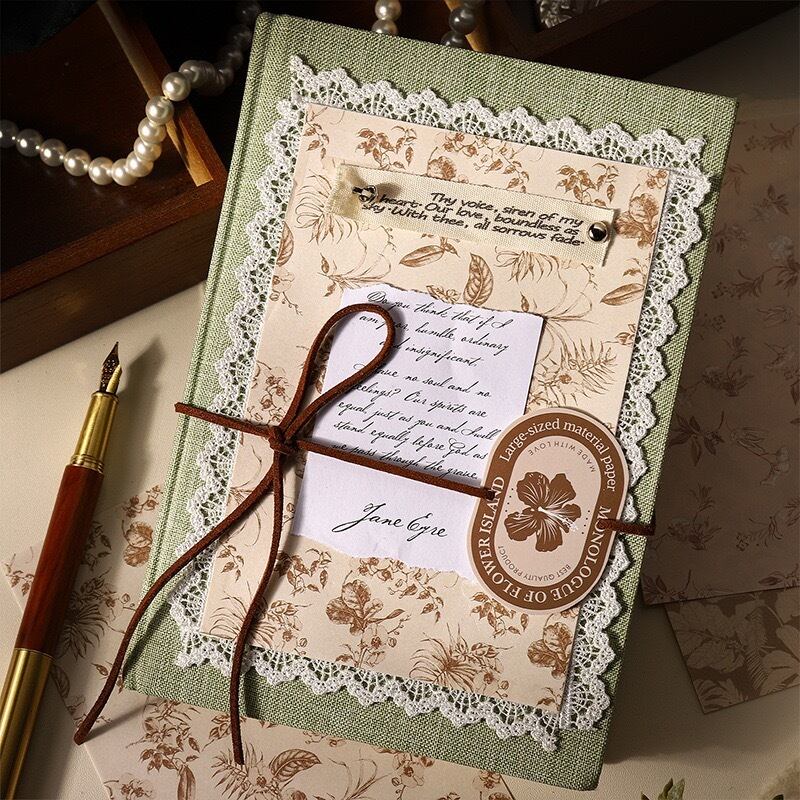 Thy voice, siren of my
heart. Our love, boundless as
sky. With thee, all sorrows fade.
Do you think that if I
am poor, humble, ordinary
and insignificant.
have no soul and no
feelings? Our spirits are
equal, just as you and I will
stand equally before God as
we pass through the grave
Jane Eyre
Large-sized material paper
MADE WITH LOVE
BEST QUALITY PRODUCT
MONOLOGUE OF FLOWER ISLAND